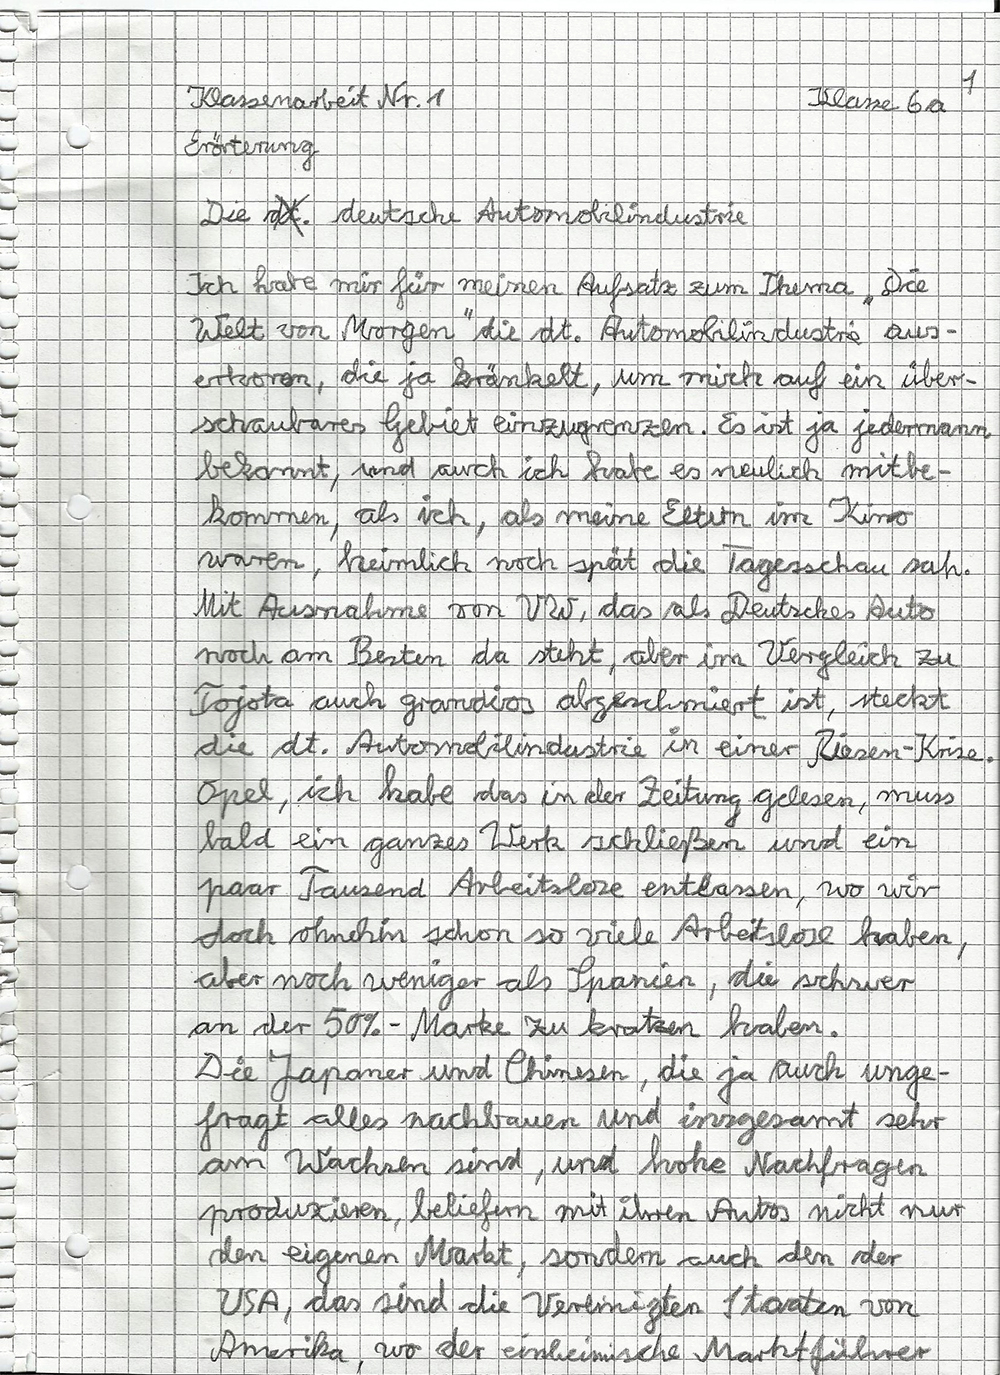 1
Klassenarbeit Nr. 1 Klasse 6a
Erörterung
Die dt. deutsche Automobilindustrie
Ich habe mir für meinen Aufsatz zum Thema „Die
Welt von Morgen" die dt. Automobilindustrie aus-
erkoren, die ja kränkelt, um mich auf ein über-
schaubares Gebiet einzugrenzen. Es ist ja jedermann
bekannt, und auch ich habe es neulich mitbe-
kommen, als ich, als meine Eltern im Kino
waren, heimlich noch spät die Tagesschau sah.
Mit Ausnahme von VW, das als Deutsches Auto
noch am Besten da steht, aber im Vergleich zu
Tojota auch grandios abgeschmiert ist, steckt
die dt. Automobilindustrie in einer Riesen-Krise.
Opel, ich habe das in der Zeitung gelesen, muss
bald ein ganzes Werk schließen und ein
paar Tausend Arbeitslose entlassen, wo wir
doch ohnehin schon so viele Arbeitslose haben,
aber noch weniger als Spanien, die schwer
an der 50%-Marke zu kratzen haben.
Die Japaner und Chinesen, die ja auch unge-
fragt alles nachbauen und insgesamt sehr
am Wachsen sind, und hohe Nachfragen
produzieren, beliefern mit ihren Autos nicht nur
den eigenen Markt, sondern auch den der
USA, das sind die Vereinigten Staaten von
Amerika, wo der einheimische Marktführer